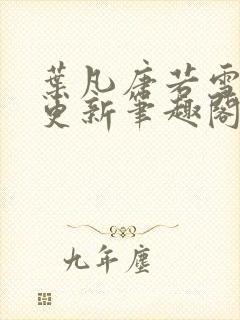 葉凡唐若雪
更新筆趣閣
九年塵